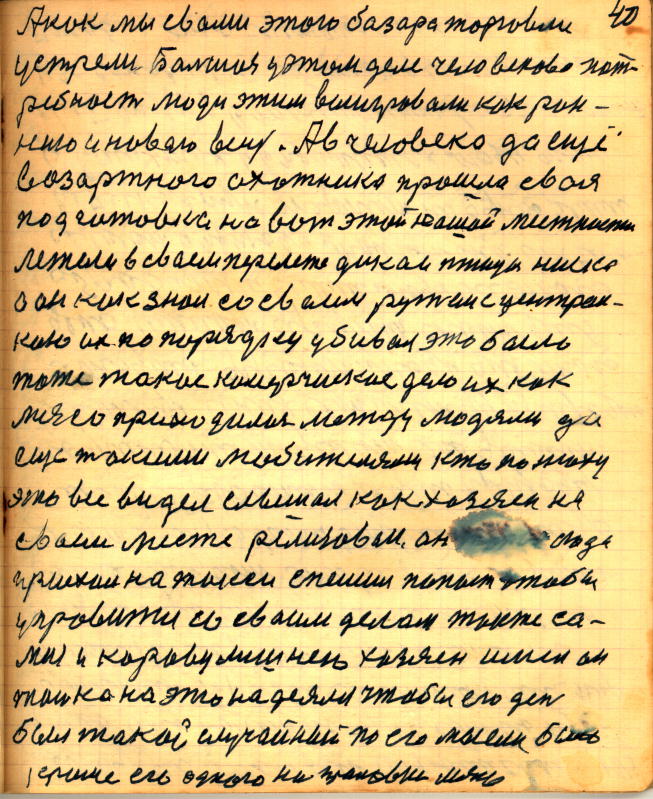 40
А как мы своим этого базара торговли
устрели Балшая у этом деле человеково пот-
ребност люди этим воигровали как ран-
него и новаго вещ. А в человека да ещё
возартного охотника прошла своя
подготовка на вот этой нашой местности
летела в своем перелете дикая птица ниско
а он как знал со своим ружем централ-
кою их по порядку убивал это было
тоже такое комерчиское дело их как
мясо приходилос между людями да
еще такими любителями кто по току
это все видел слышал как хозяен на
своим месте релизовал. он сюда
приехал на такси спешил попаст чтобы
управится со своим делом также са-
мы и коровушией хозяен имел он
толко на это надеялся чтобы его ден
был такой случайный по его мысли было
кроме его одного на